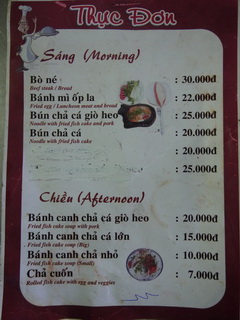 Thực Đơn
Sáng (Morning)
Bò né : 30.000đ
Beef steak / Bread
Bánh mì ốp la : 22.000đ
Fried egg / Luncheon meat and bread
Bún chả cá giò heo : 25.000đ
Noodle with fried fish cake and pork
Bún chả cá : 20.000đ
Noodle with fried fish cake
: 20.000đ
: 25.000đ
Chiều (Afternoon)
Bánh canh chả cá giò heo : 20.000đ
Fried fish cake soup with pork
Bánh canh chả cá lớn : 15.000đ
Fried fish cake soup (Big)
Bánh canh chả cá nhỏ : 10.000đ
Fried fish cake soup (Small)
Chả cuốn : 7.000đ
Rolled fish cake with egg and veggies